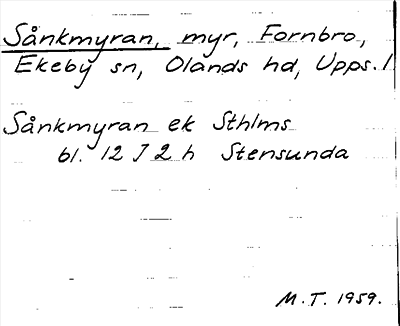 Sånkmyran, myr, Fornbro,
Ekeby sn, Olands hd, Upps. l
Sånkmyran ek Sthlms
bl. 12 J 2 h Stensunda
M.T. 1959.